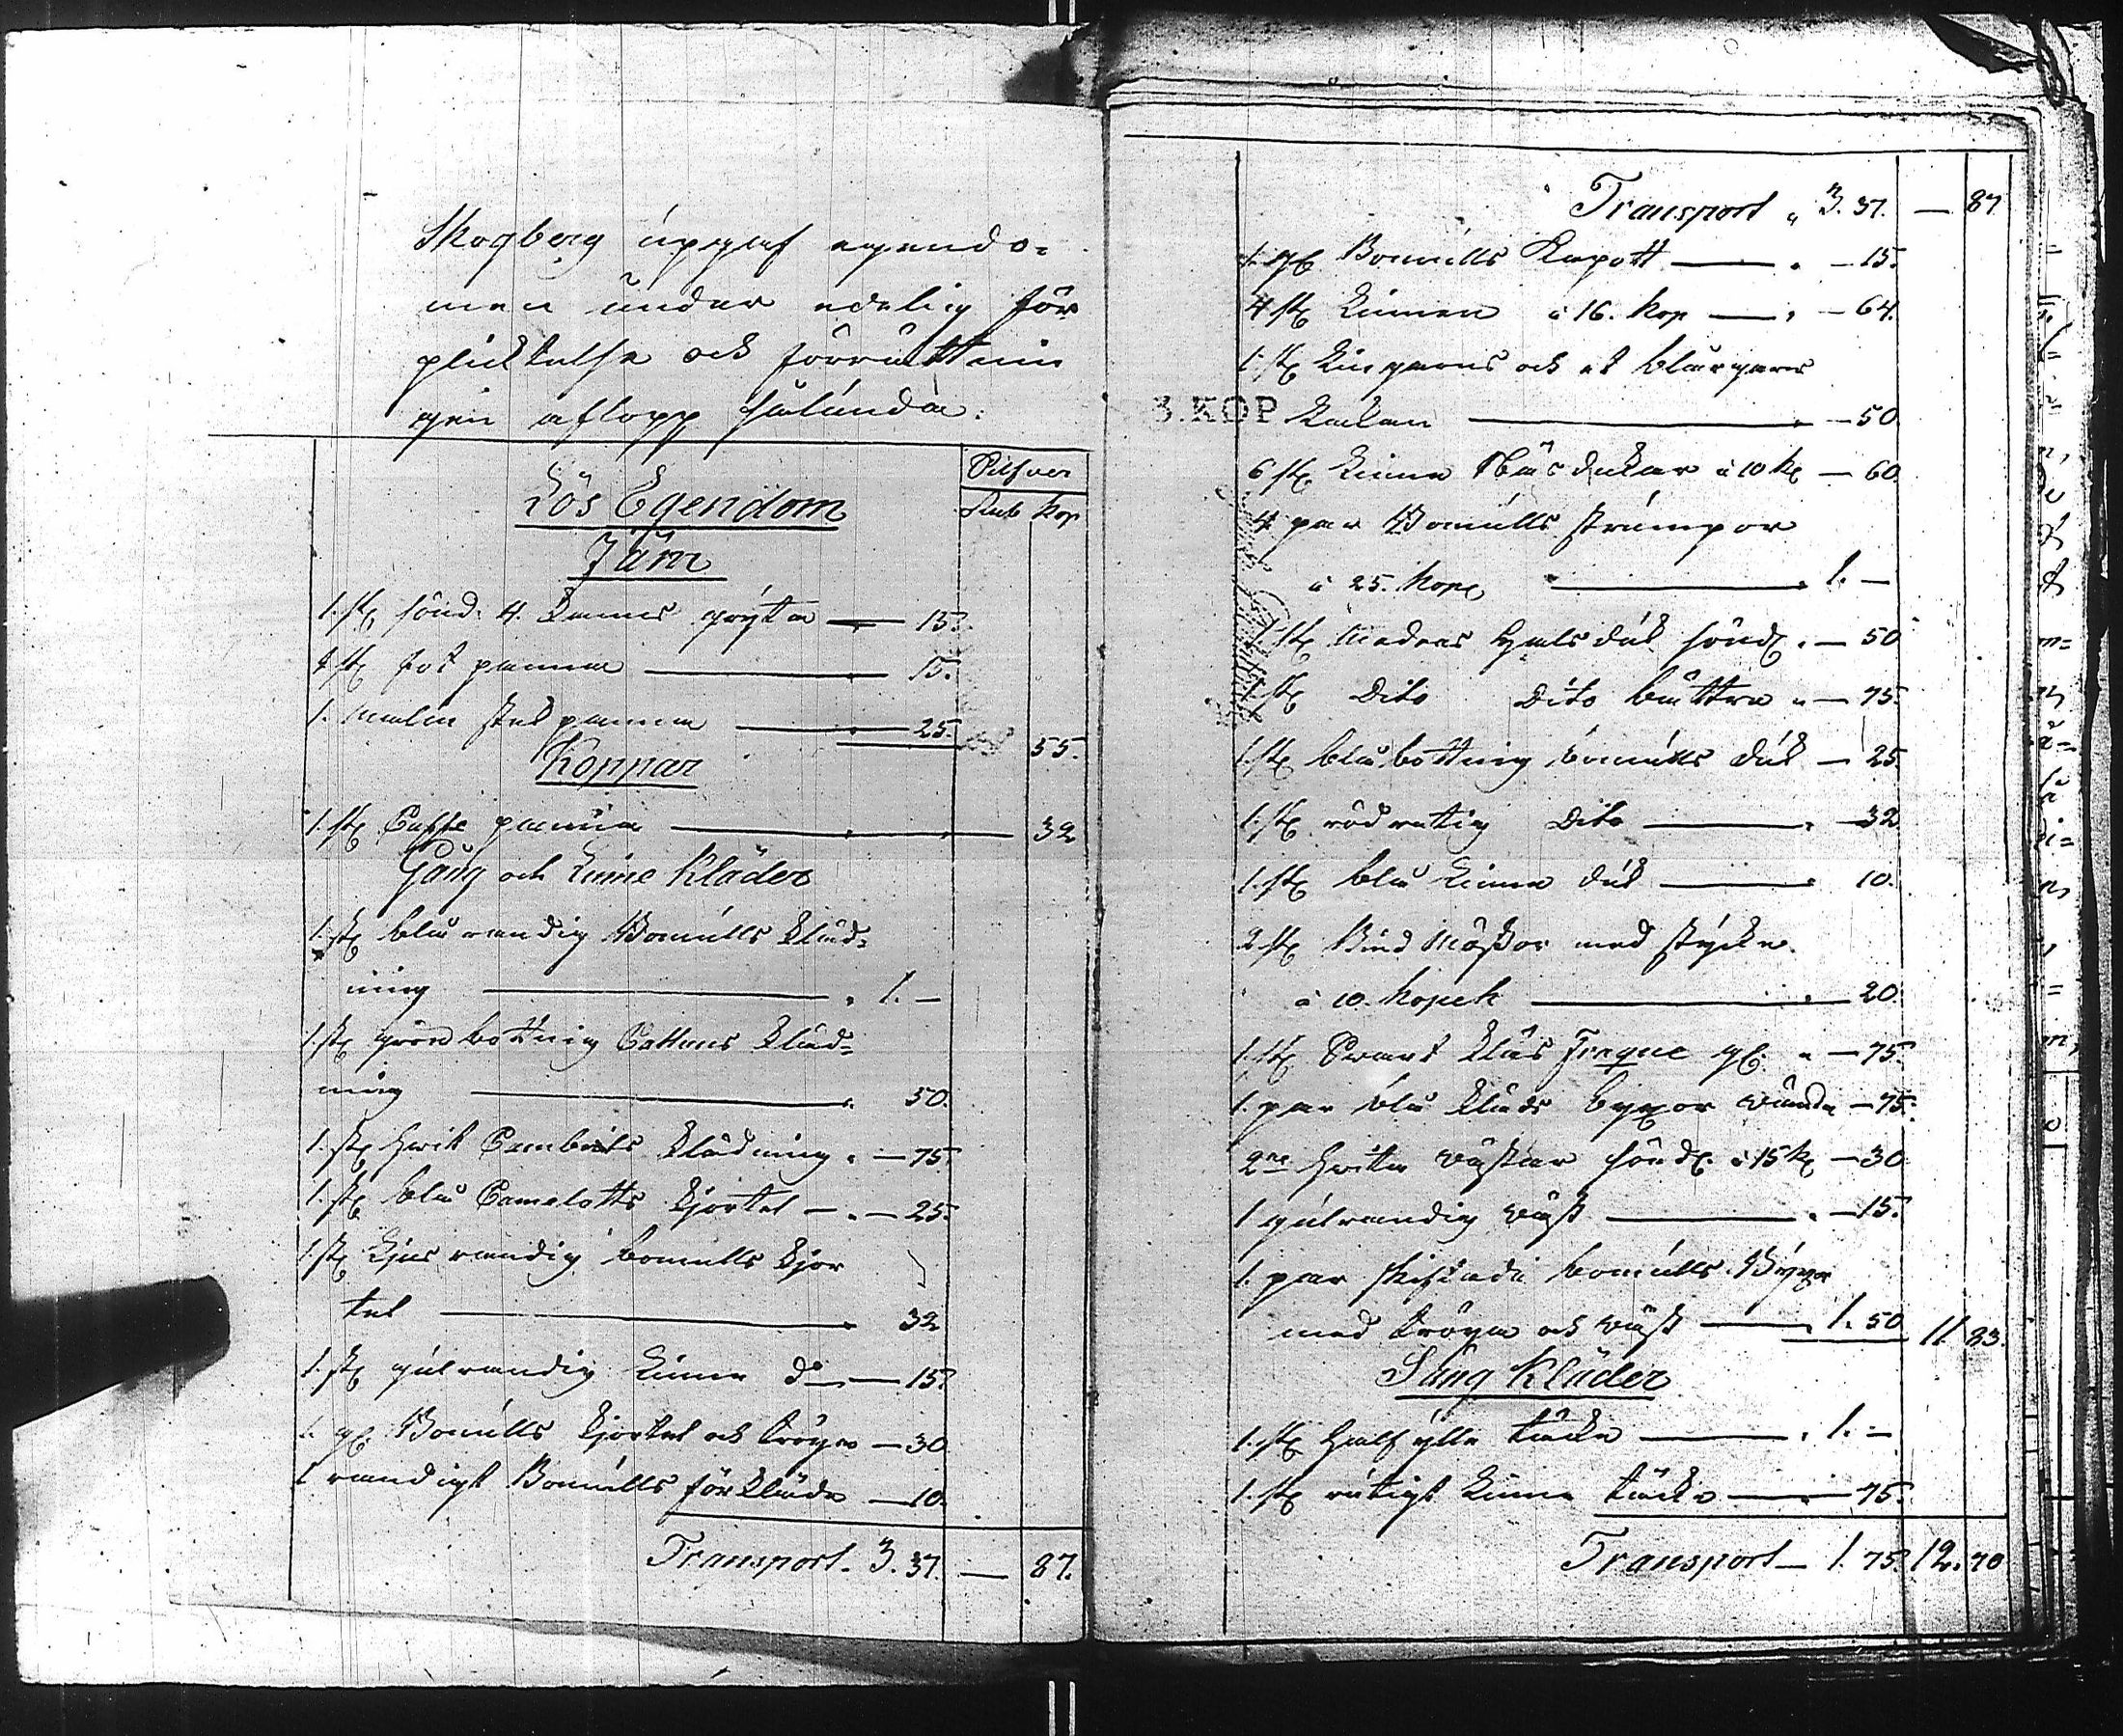 Skogberg úpgaf egendo=
men ŭnder edelig för
plicktelse och förrättnin
gen aflopp sålúnda:
Silfver
Rub kop
Lös Egendom
Järn
1. st sönd. 4. kannes gryta — 15.
1 st fot panna — 15.
1. malm stekpanna — 25. 55.
Koppar
1. st Caffe panna — 32
Gång och Linne Kläder
1. st blårandig Bomúlls kläd=
ning — 1. —
1. st grönbottnig Cattuns kläd=
ning — 50.
1. st hvit Cambriks klädning — 75.
1. st blå Camelotts kjortel — 25.
1. st ljus randig bomulls kjor
tel — 32
1. st gúlrandig Linne do — 15.
1. gl Bomúlls kjortel och tröya — 30
1 randigt Bomúlls förkläde — 10.
Transport. 3. 37. — 87.
Transport " 3. 37. — 87
1. gl Bomúlls Kapott — 15.
4 st Linnen à 16. kop — 64.
1. st Lingarns och et blårgarns
3. KOP
Lakan — 50
6 st Linne Näsdukar à 10 k — 60
4 par Bomúlls strúmpor
à 25. kop — 1. —
1 st Madras Halsdúk sönd — 50
1 st Dito Dito bättre — 75.
1. st blåbottnig bomúlls dúk — 25.
1. st rödrutig Dito — 32
1. st blå Linne dúk — 10.
2 st Bind Mössor med stycke
à 10. kopek — 20.
1. st Svart kläs Fraque gl. — 75.
1. par blå kläds byxor vända — 75.
2ne hvita västar sönd. à 15 k — 30
1 gúlrandig väst — 15.
1. par bomúlls Býxor
med tröya och väst — 1. 50 11. 83.
Säng Kläder
1. st Half ylle täcke — 1. —
1. st rútigt Linne täcke — 75.
Transport — 1. 75. 12. 70